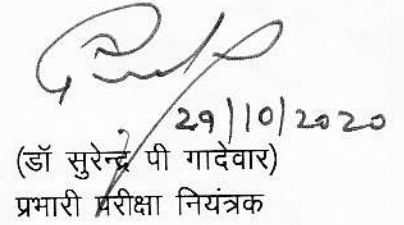 29/10/2020
(डॉ सुरेन्द्र पी गादेवार)
प्रभारी परीक्षा नियंत्रक